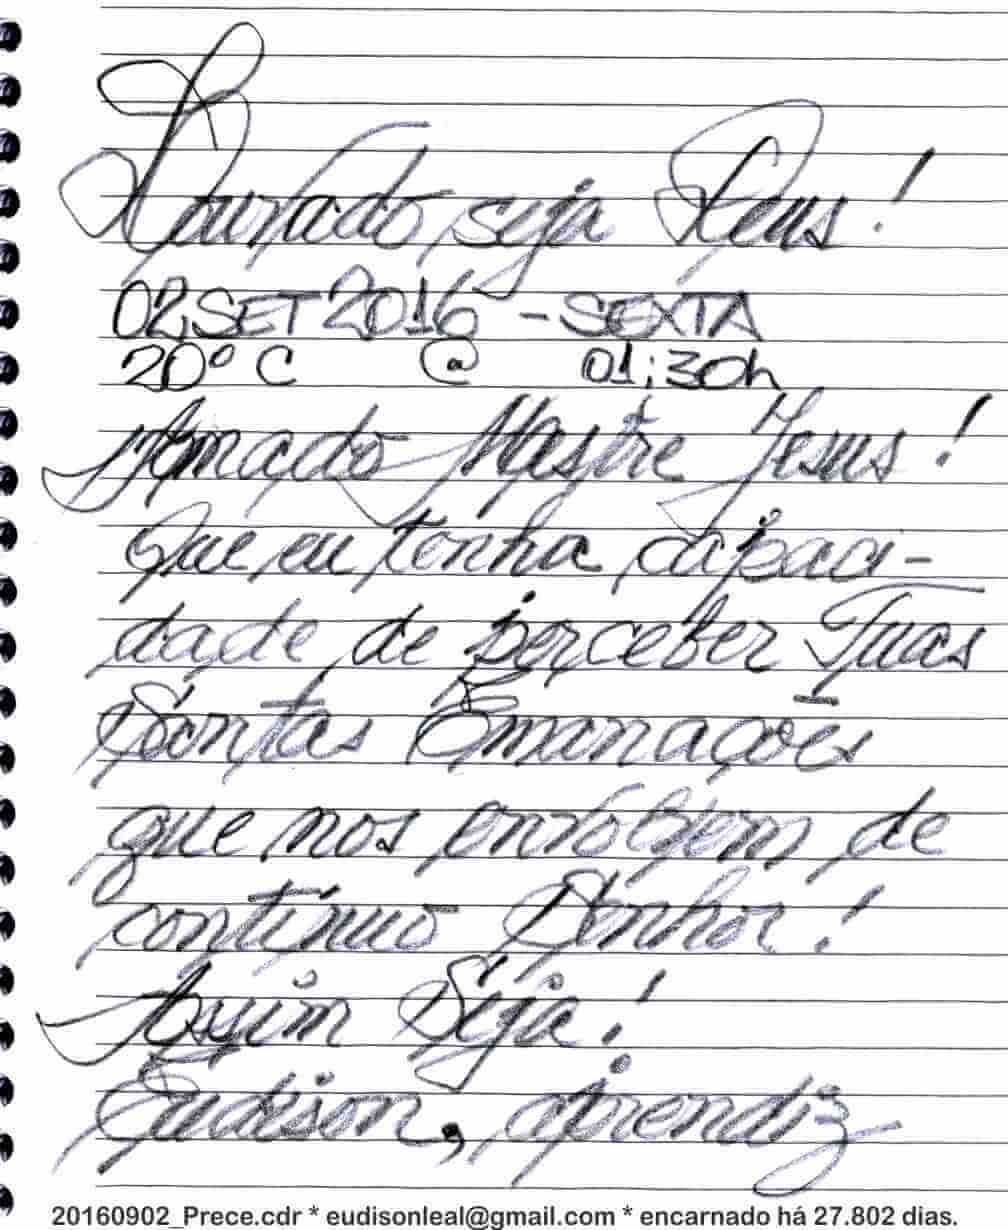 Louvado seja Deus!
02 SET 2016 - SEXTA
20º C @ 01:30h
Amado Mestre Jesus!
Que eu tenha capaci-
dade de perceber Tuas
Santas Emanações
que nos envolvem de
contínuo Senhor!
Assim Seja!
Eudison, aprendiz
20160902_Prece.cdr * eudisonleal@gmail.com * encarnado há 27.802 dias.